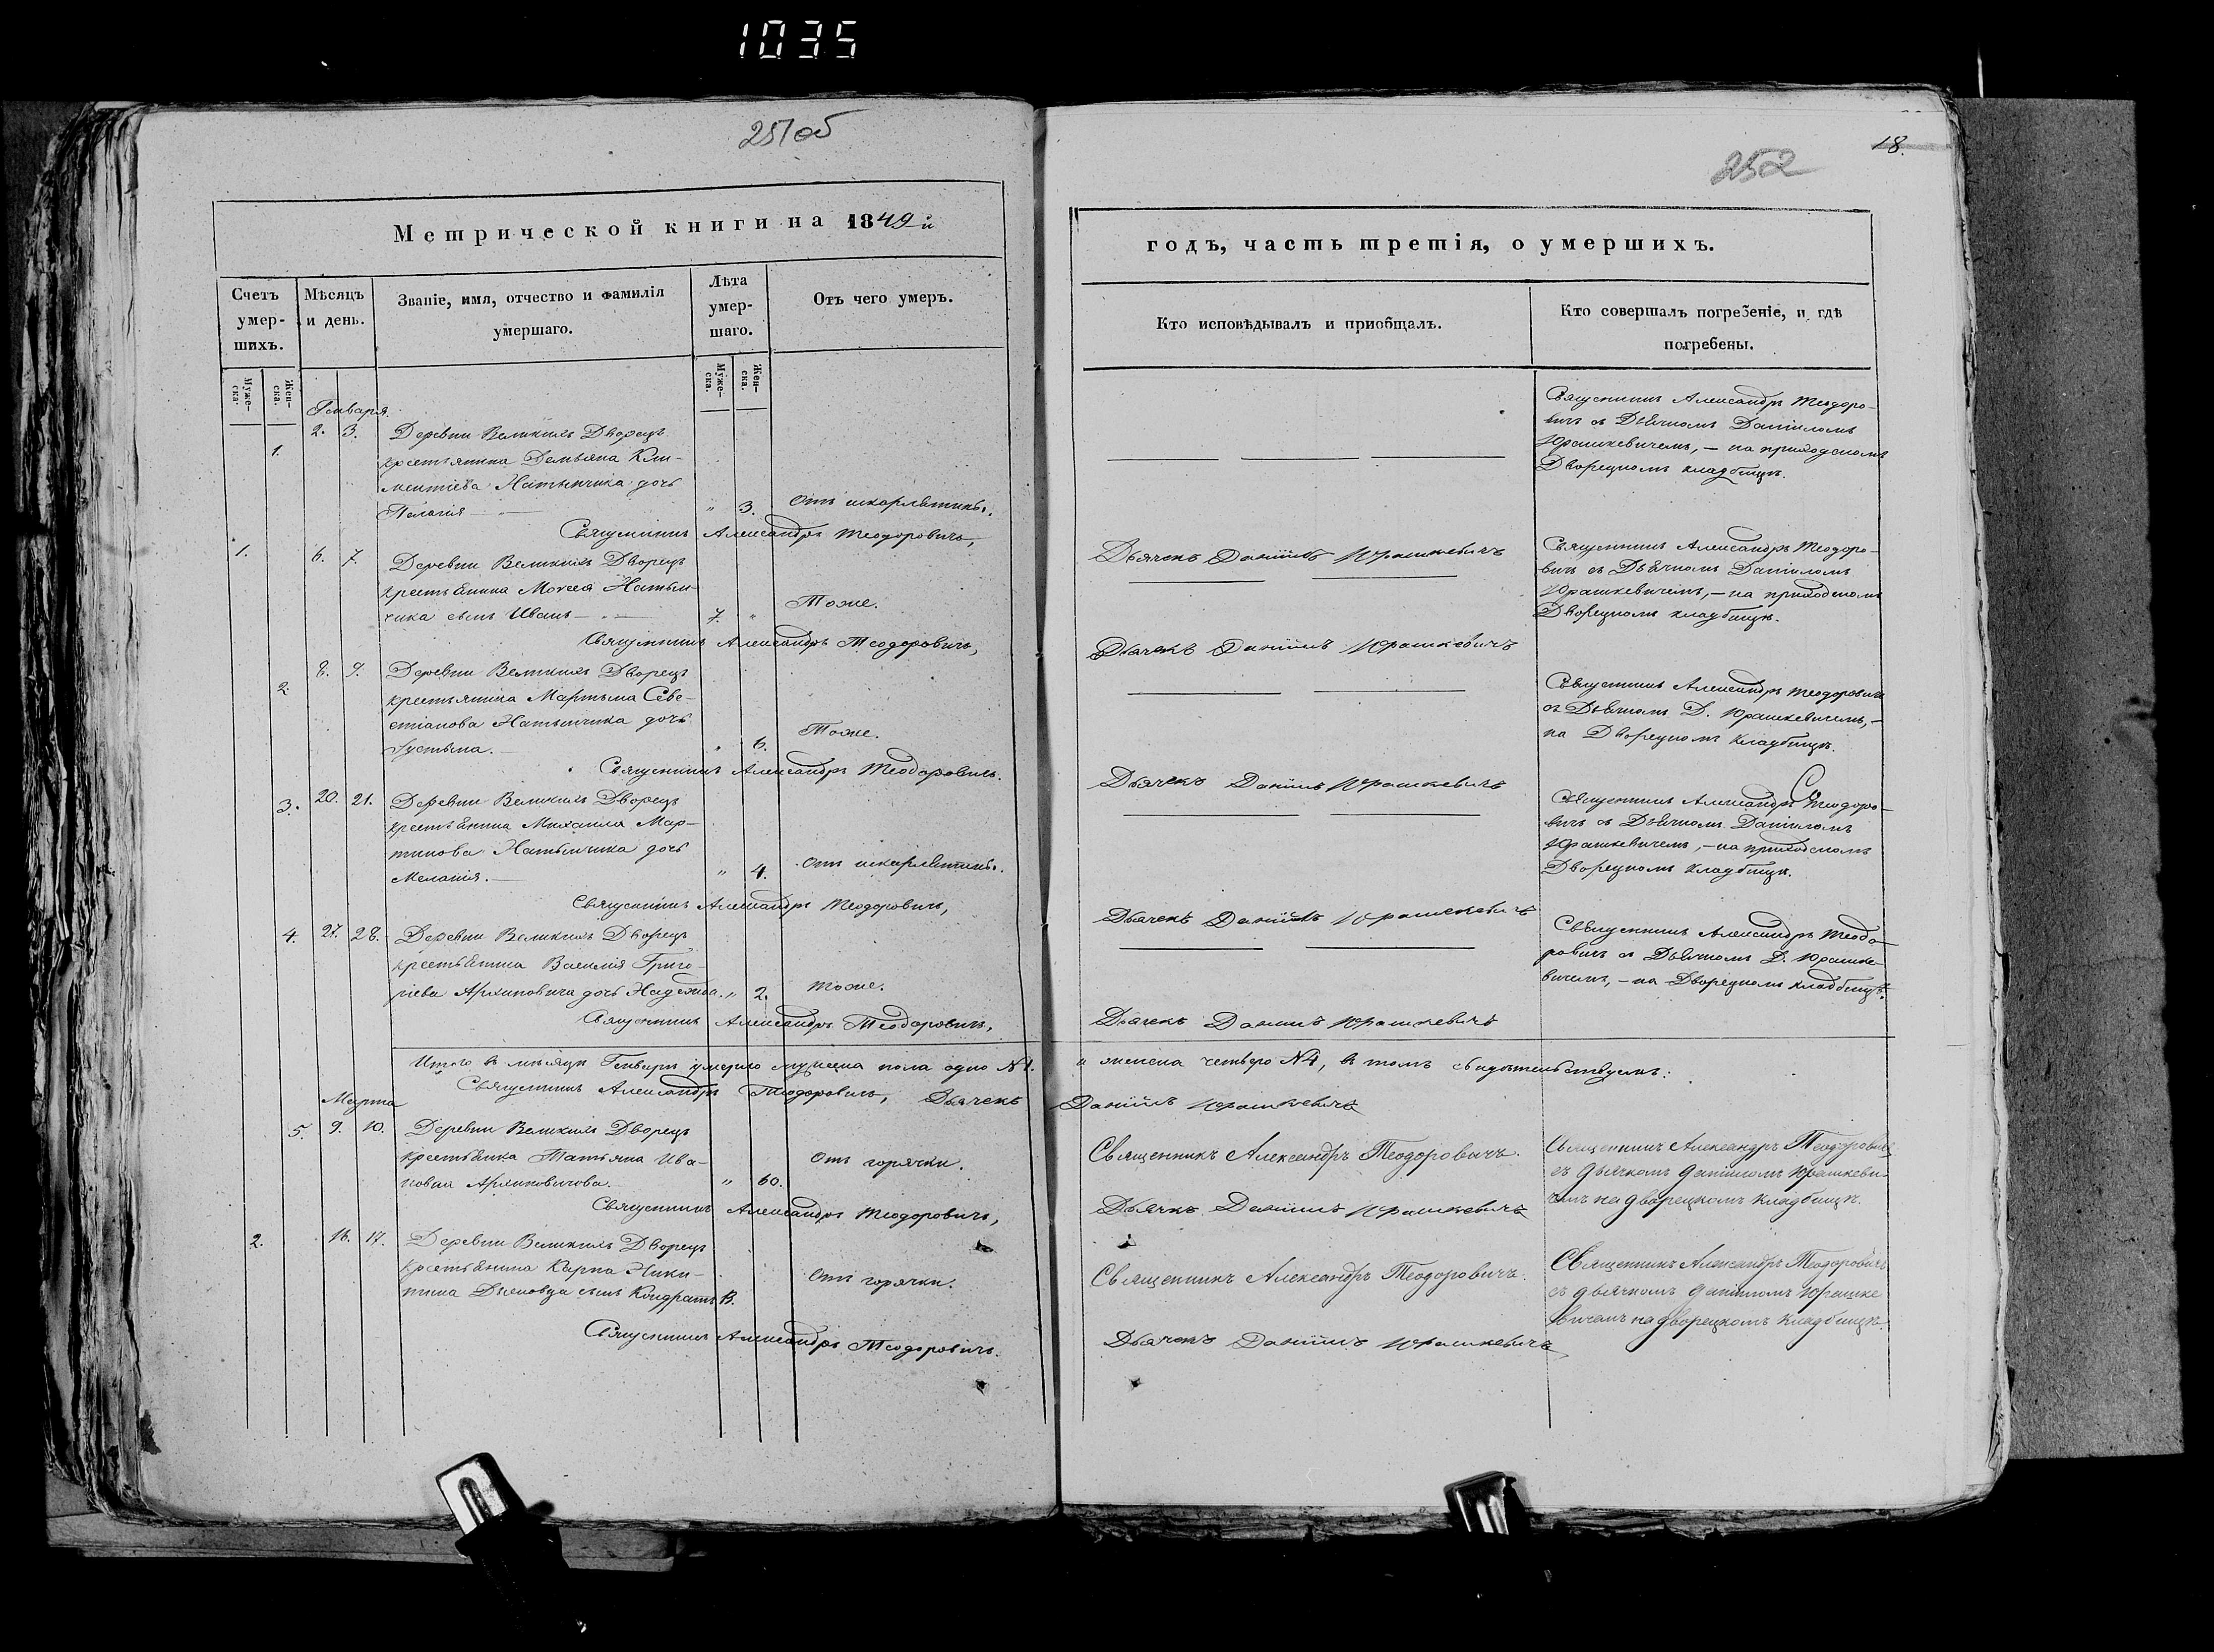 1035
251об
Метрической книги на 1849й
Счетъ умершихъ.
Мѣсяцъ и день.
Званіе, имя, отчество и фамилія умершаго.
Лѣта умершаго.
Отъ чего умеръ.
Муже-ска.
Жен-ска.
Муже-ска.
Жен-ска.
Генваря.
1. 2. 3. Деревни Великихъ Дворецъ
крестьянина Демьяна Кли-
ментіева Натынчика дочь
Пелагія — " 3. Отъ шкарлятины.
Священникъ Александръ Теодоровичъ,
1. 6. 7. Деревни Великихъ Дворецъ
крестьянина Моѵсея Натын-
чика сынъ Иванъ — 7. " Тоже.
Священникъ Александръ Теодоровичъ,
2. 8. 9. Деревни Великихъ Дворецъ
крестьянина Мартина Севе-
стіанова Натынчика дочь
Іустина. — " 6. Тоже.
Священникъ Александръ Теодоровичъ.
3. 20. 21. Деревни Великихъ Дворецъ
крестьянина Михаила Мар-
тинова Натынчика дочь
Меланія. — " 4. Отъ шкарлятины.
Священникъ Александръ Теодоровичъ,
4. 27. 28. Деревни Великихъ Дворецъ
крестьянина Василія Григо-
ріева Архиповича дочь Надежда. " 2. тоже.
Священникъ Александръ Теодоровичъ,
Итого въ мѣсяцѣ Генварѣ умерло мужеска пола одно №1.
Священникъ Александръ Теодоровичъ, Дьячекъ
Марта
5. 9. 10. Деревни Великихъ Дворецъ
крестьянка Татьяна Ива-
новна Архиповичова. — " 60. Отъ горячки.
Священникъ Александръ Теодоровичъ,
2. 16. 17. Деревни Великихъ Дворецъ
крестьянина Карпа Ники-
тина сынъ Кондратъ 13. Отъ горячки.
Священникъ Александръ Теодоровичъ.
18.
252
годъ, часть третія, о умершихъ.
Кто исповѣдывалъ и пріобщалъ.
Кто совершалъ погребеніе, и гдѣ погребены.
Священникъ Александръ Теодоро-
вичъ съ Дьячкомъ Даніиломъ
Юрашкевичемъ, — на приходскомъ
Дворецкомъ кладбищѣ.
Дьячекъ Даніилъ Юрашкевичъ
Священникъ Александръ Теодоро-
вичъ съ Дьячкомъ Даніиломъ
Юрашкевичемъ, — на приходскомъ
Дворецкомъ кладбищѣ.
Дьячекъ Даніилъ Юрашкевичъ
Священникъ Александръ Теодоровичъ
съ Дьячкомъ Д. Юрашкевичемъ, —
на Дворецкомъ кладбищѣ.
Дьячекъ Даніилъ Юрашкевичъ
Священникъ Александръ Теодоро-
вичъ съ Дьячкомъ Даніиломъ
Юрашкевичемъ, — на приходскомъ
Дворецкомъ кладбищѣ.
Дьячекъ Даніилъ Юрашкевичъ
Священникъ Александръ Теодо-
ровичъ съ Дьячкомъ Д. Юрашке-
вичемъ, — на Дворецкомъ кладбищѣ.
Дьячекъ Даніилъ Юрашкевичъ
и женска четверо №4, въ томъ свидѣтельствуемъ:
Даніилъ Юрашкевичъ
Священникъ Александръ Теодоровичъ.
Священникъ Александръ Теодоровичъ
съ дьячкомъ Даніиломъ Юрашкеви-
чемъ на дворецкомъ кладбищѣ.
Дьячекъ Даніилъ Юрашкевичъ
Священникъ Александръ Теодоровичъ.
Священникъ Александръ Теодоровичъ
съ дьячкомъ Даніиломъ Юрашке
вичемъ на дворецкомъ кладбищѣ.
Дьячекъ Даніилъ Юрашкевичъ